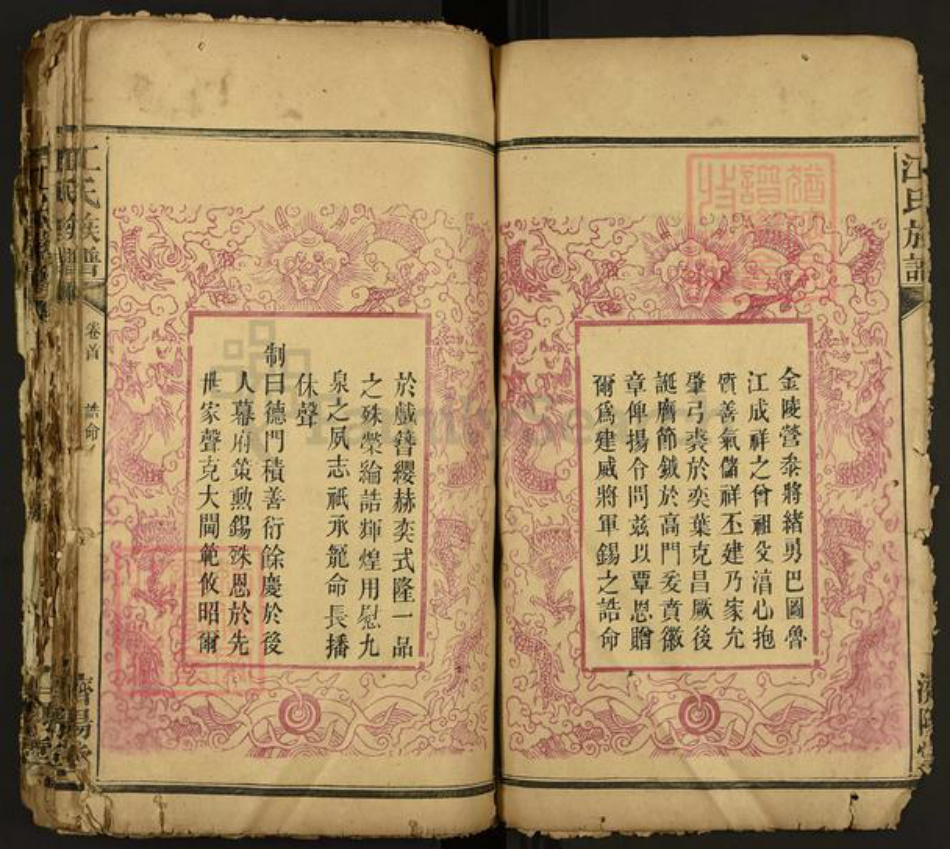 江氏族譜
金陵營叅將緒勇巴圖魯
江成祥之曾祖父
心抱
質善氣儲祥丕建乃家允
肇弓裘於奕葉克昌厥後
誕膺節鉞於高門爰賁徽
章俾揚令問茲以覃恩贈
爾爲建威將軍錫之誥命
於戲簪纓赫奕式隆一品
之殊榮綸誥輝煌用慰九
泉之夙志祇承寵命長播
休聲
制曰德門積善衍餘慶於後
人幕府策勲錫殊恩於先
世家聲克大閫範攸昭爾
江氏族譜
卷首
誥命
濟陽堂
FamilySearch